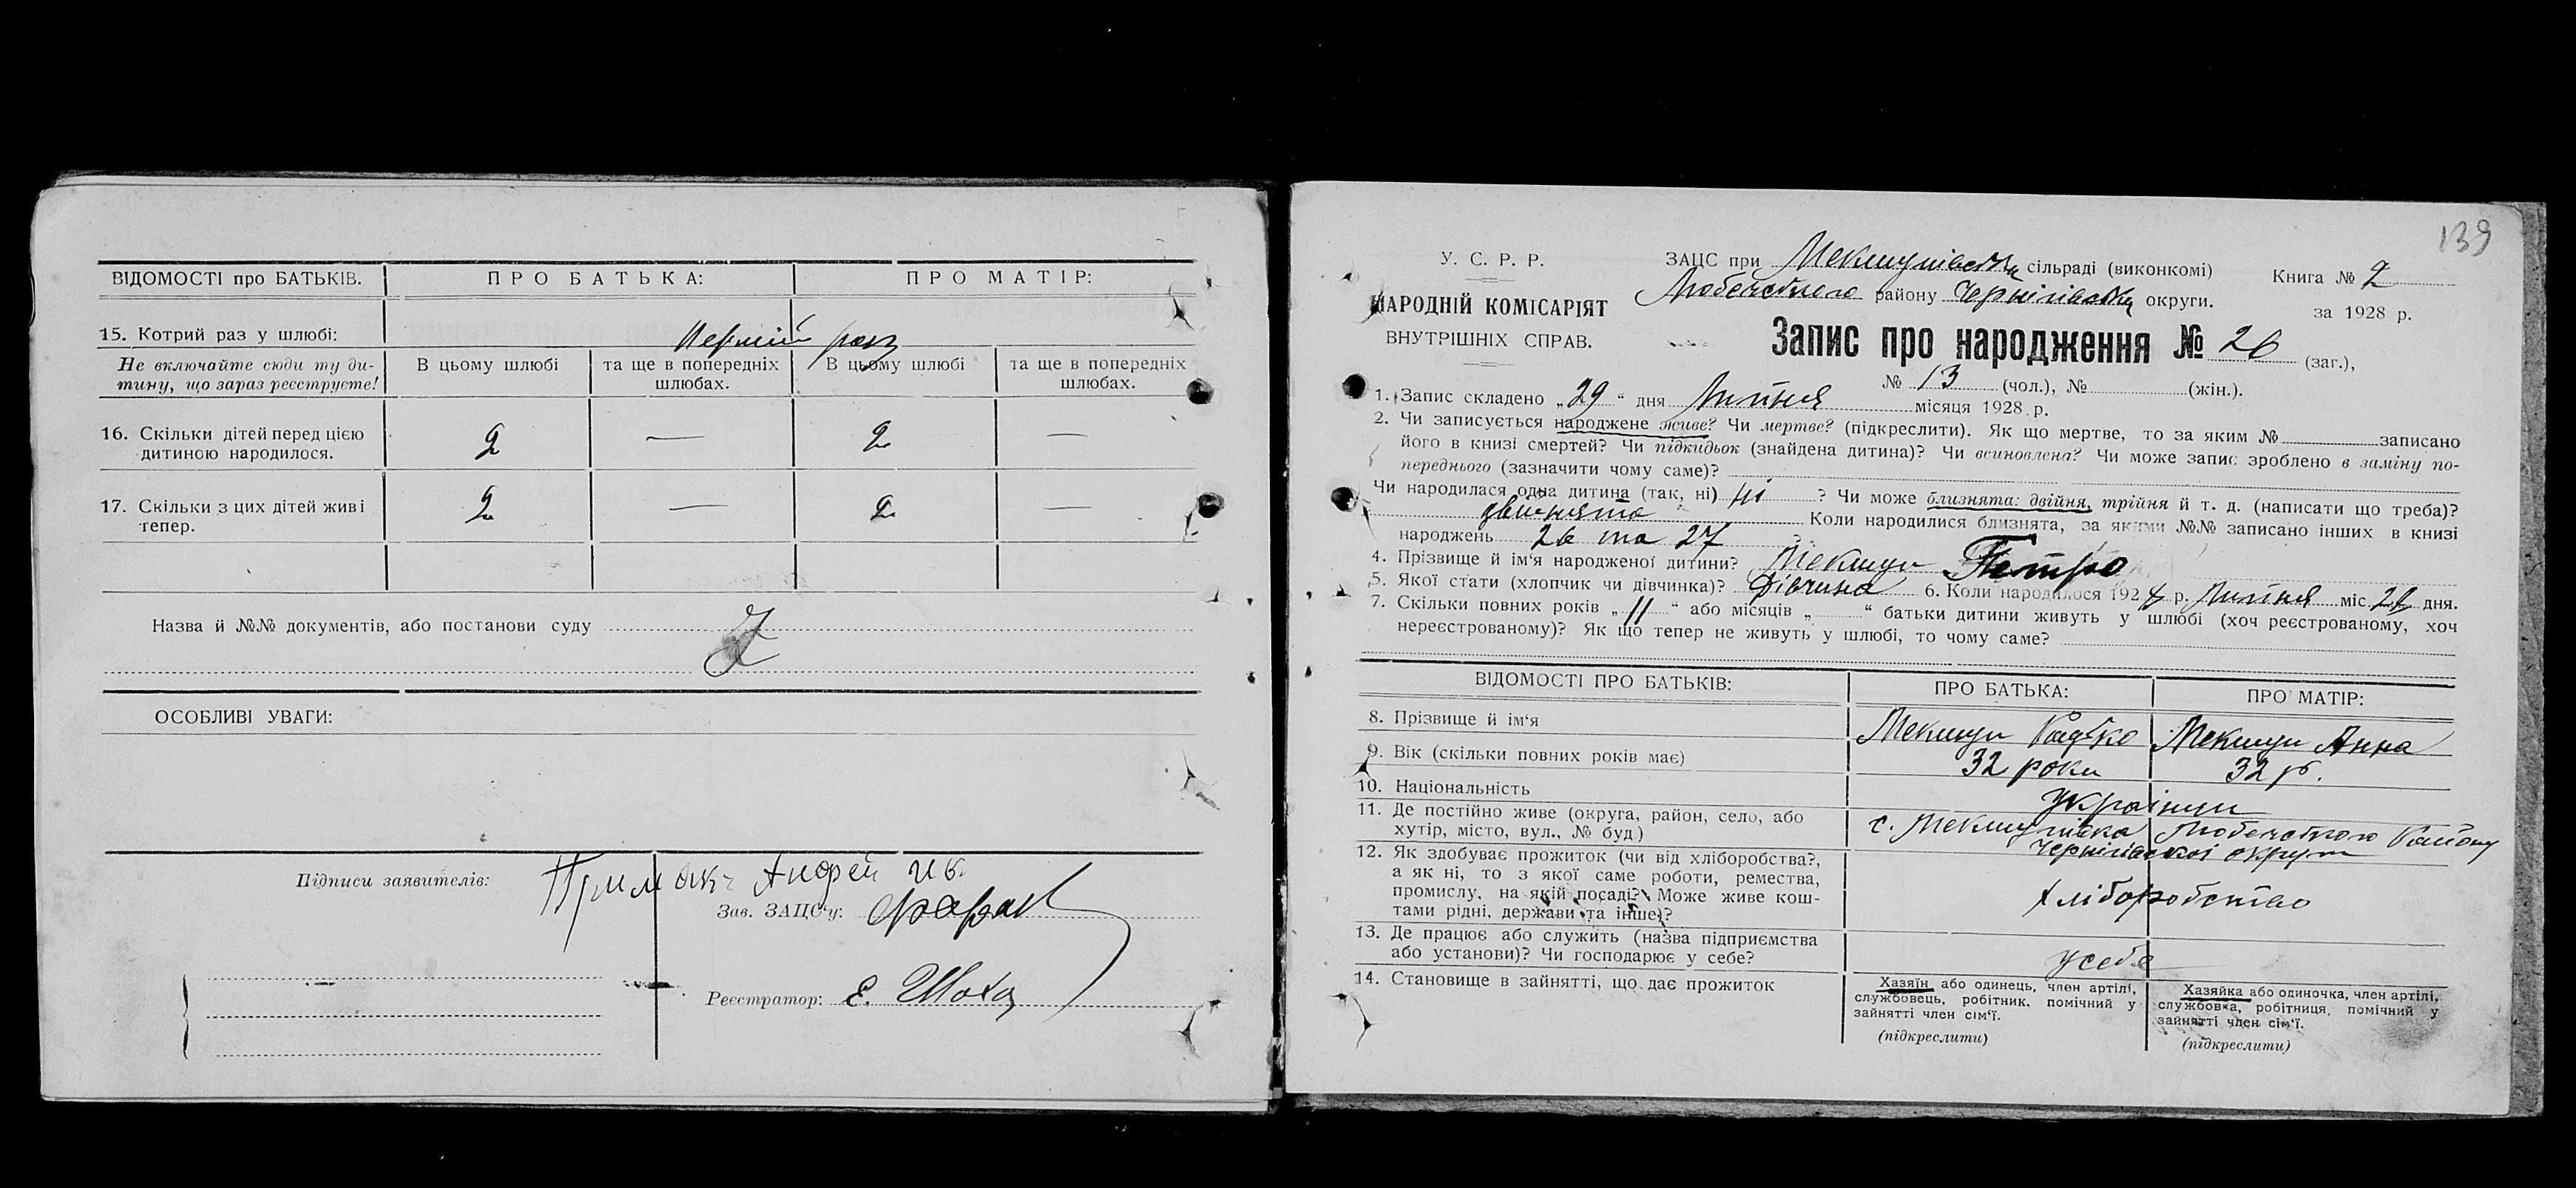 ВІДОМОСТІ про БАТЬКІВ. ПРО БАТЬКА: ПРО МАТІР:
15. Котрий раз у шлюбі: Перший раз
Не включайте сюди ту ди-
тину, що зараз реєструєте!
В цьому шлюбі
та ще в попередніх
шлюбах.
В цьому шлюбі
та ще в попередніх
шлюбах.
16. Скільки дітей перед цією
дитиною народилося.
2 — 2 —
17. Скільки з цих дітей живі
тепер.
2 — 2 —
Назва й №№ документів, або постанови суду
ОСОБЛИВІ УВАГИ:
Підписи заявителів: Примак Андрей Ив.
Зав. ЗАЦС'у:
Реєстратор: Е.
139
У. С. Р. Р.
НАРОДНІЙ КОМІСАРІЯТ
ВНУТРІШНІХ СПРАВ.
ЗАЦС при сільраді (виконкомі)
Любечського району Чернігівськ округи.
Книга № 2
за 1928 р.
Запис про народження № 26 (заг.),
№ 13 (чол.), № (жін.).
1. Запис складено „29" дня Липня місяця 1928 р.
2. Чи записується народжене живе? Чи мертве? (підкреслити). Як що мертве, то за яким № записано
його в книзі смертей? Чи підкидьок (знайдена дитина)? Чи всиновлена? Чи може запис зроблено в заміну по-
переднього (зазначити чому саме)?
Чи народилася одна дитина (так, ні) ні ? Чи може близнята: двійня, трійня й т. д. (написати що треба)?
двійнята Коли народилися близнята, за якими №№ записано інших в книзі
народжень 26 та 27
4. Прізвище й ім'я народженої дитини? Мекшун Петро
5. Якої стати (хлопчик чи дівчинка)? Дівчина 6. Коли народилося 1928 р. Липня міс. 26 дня.
7. Скільки повних років „11" або місяців „ " батьки дитини живуть у шлюбі (хоч реєстрованому, хоч
нереєстрованому)? Як що тепер не живуть у шлюбі, то чому саме?
ВІДОМОСТІ ПРО БАТЬКІВ: ПРО БАТЬКА: ПРО МАТІР:
8. Прізвище й ім'я Мекшун Мекшун Анна
9. Вік (скільки повних років має) 32 роки 32 р.
10. Національність українці
11. Де постійно живе (округа, район, село, або
хутір, місто, вул., № буд.)
с. Мекшунівка Любечського Району
Чернігівської округи
12. Як здобуває прожиток (чи від хліборобства?,
а як ні, то з якої саме роботи, ремества,
промислу, на якій посаді? Може живе кош-
тами рідні, держави та інше)?
хліборобство
13. Де працює або служить (назва підприємства
або установи)? Чи господарює у себе?
у себе
14. Становище в зайнятті, що дає прожиток
Хазяїн або одинець, член артілі,
службовець, робітник, помічний у
зайнятті член сім'ї.
(підкреслити)
Хазяйка або одиночка, член артілі,
службовка, робітниця, помічний у
зайнятті член сім'ї.
(підкреслити)